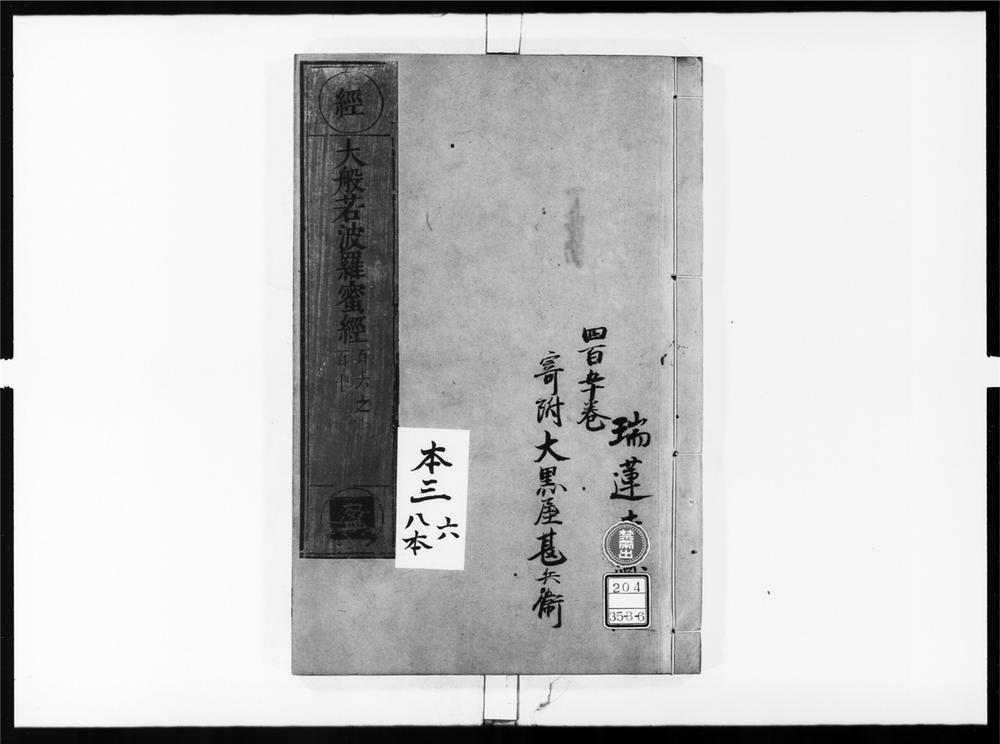 瑞蓮
禁帶出
204
35-3-6
四百五十卷
寄附大黒屋甚兵衛
本三
六
八本
經
大般若波羅蜜經
百六之
百十
盈